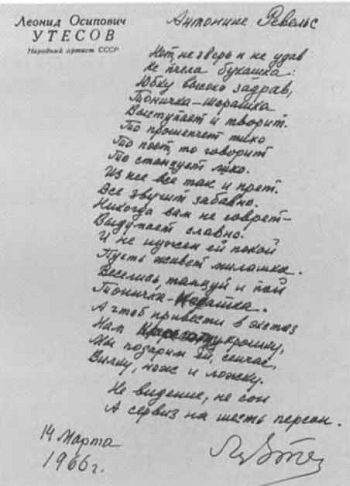 Леонид Осипович
УТЕСОВ
Народный артист СССР
Антонине Ревельс
Нет, не зверь и не удав
Не пчела букашка:
Юбку высоко задрав,
Тоничка-
Выступает и творит.
То прошепчет тихо
То поет, то говорит
То станцует лихо.
Из нее все так и прет.
Все звучит забавно.
Никогда вам не соврет-
Выдумает славно!
И не нужен ей покой
Пусть живет милашка.
Веселись, танцуй и пой
Тоничка-
А чтоб привести в экстаз
Нам крошку,
Мы подарим ей, сейчас,
Вилку, нож и ложку.
Не видение, не сон
А сервиз на шесть персон.
14 Марта
1966 г.